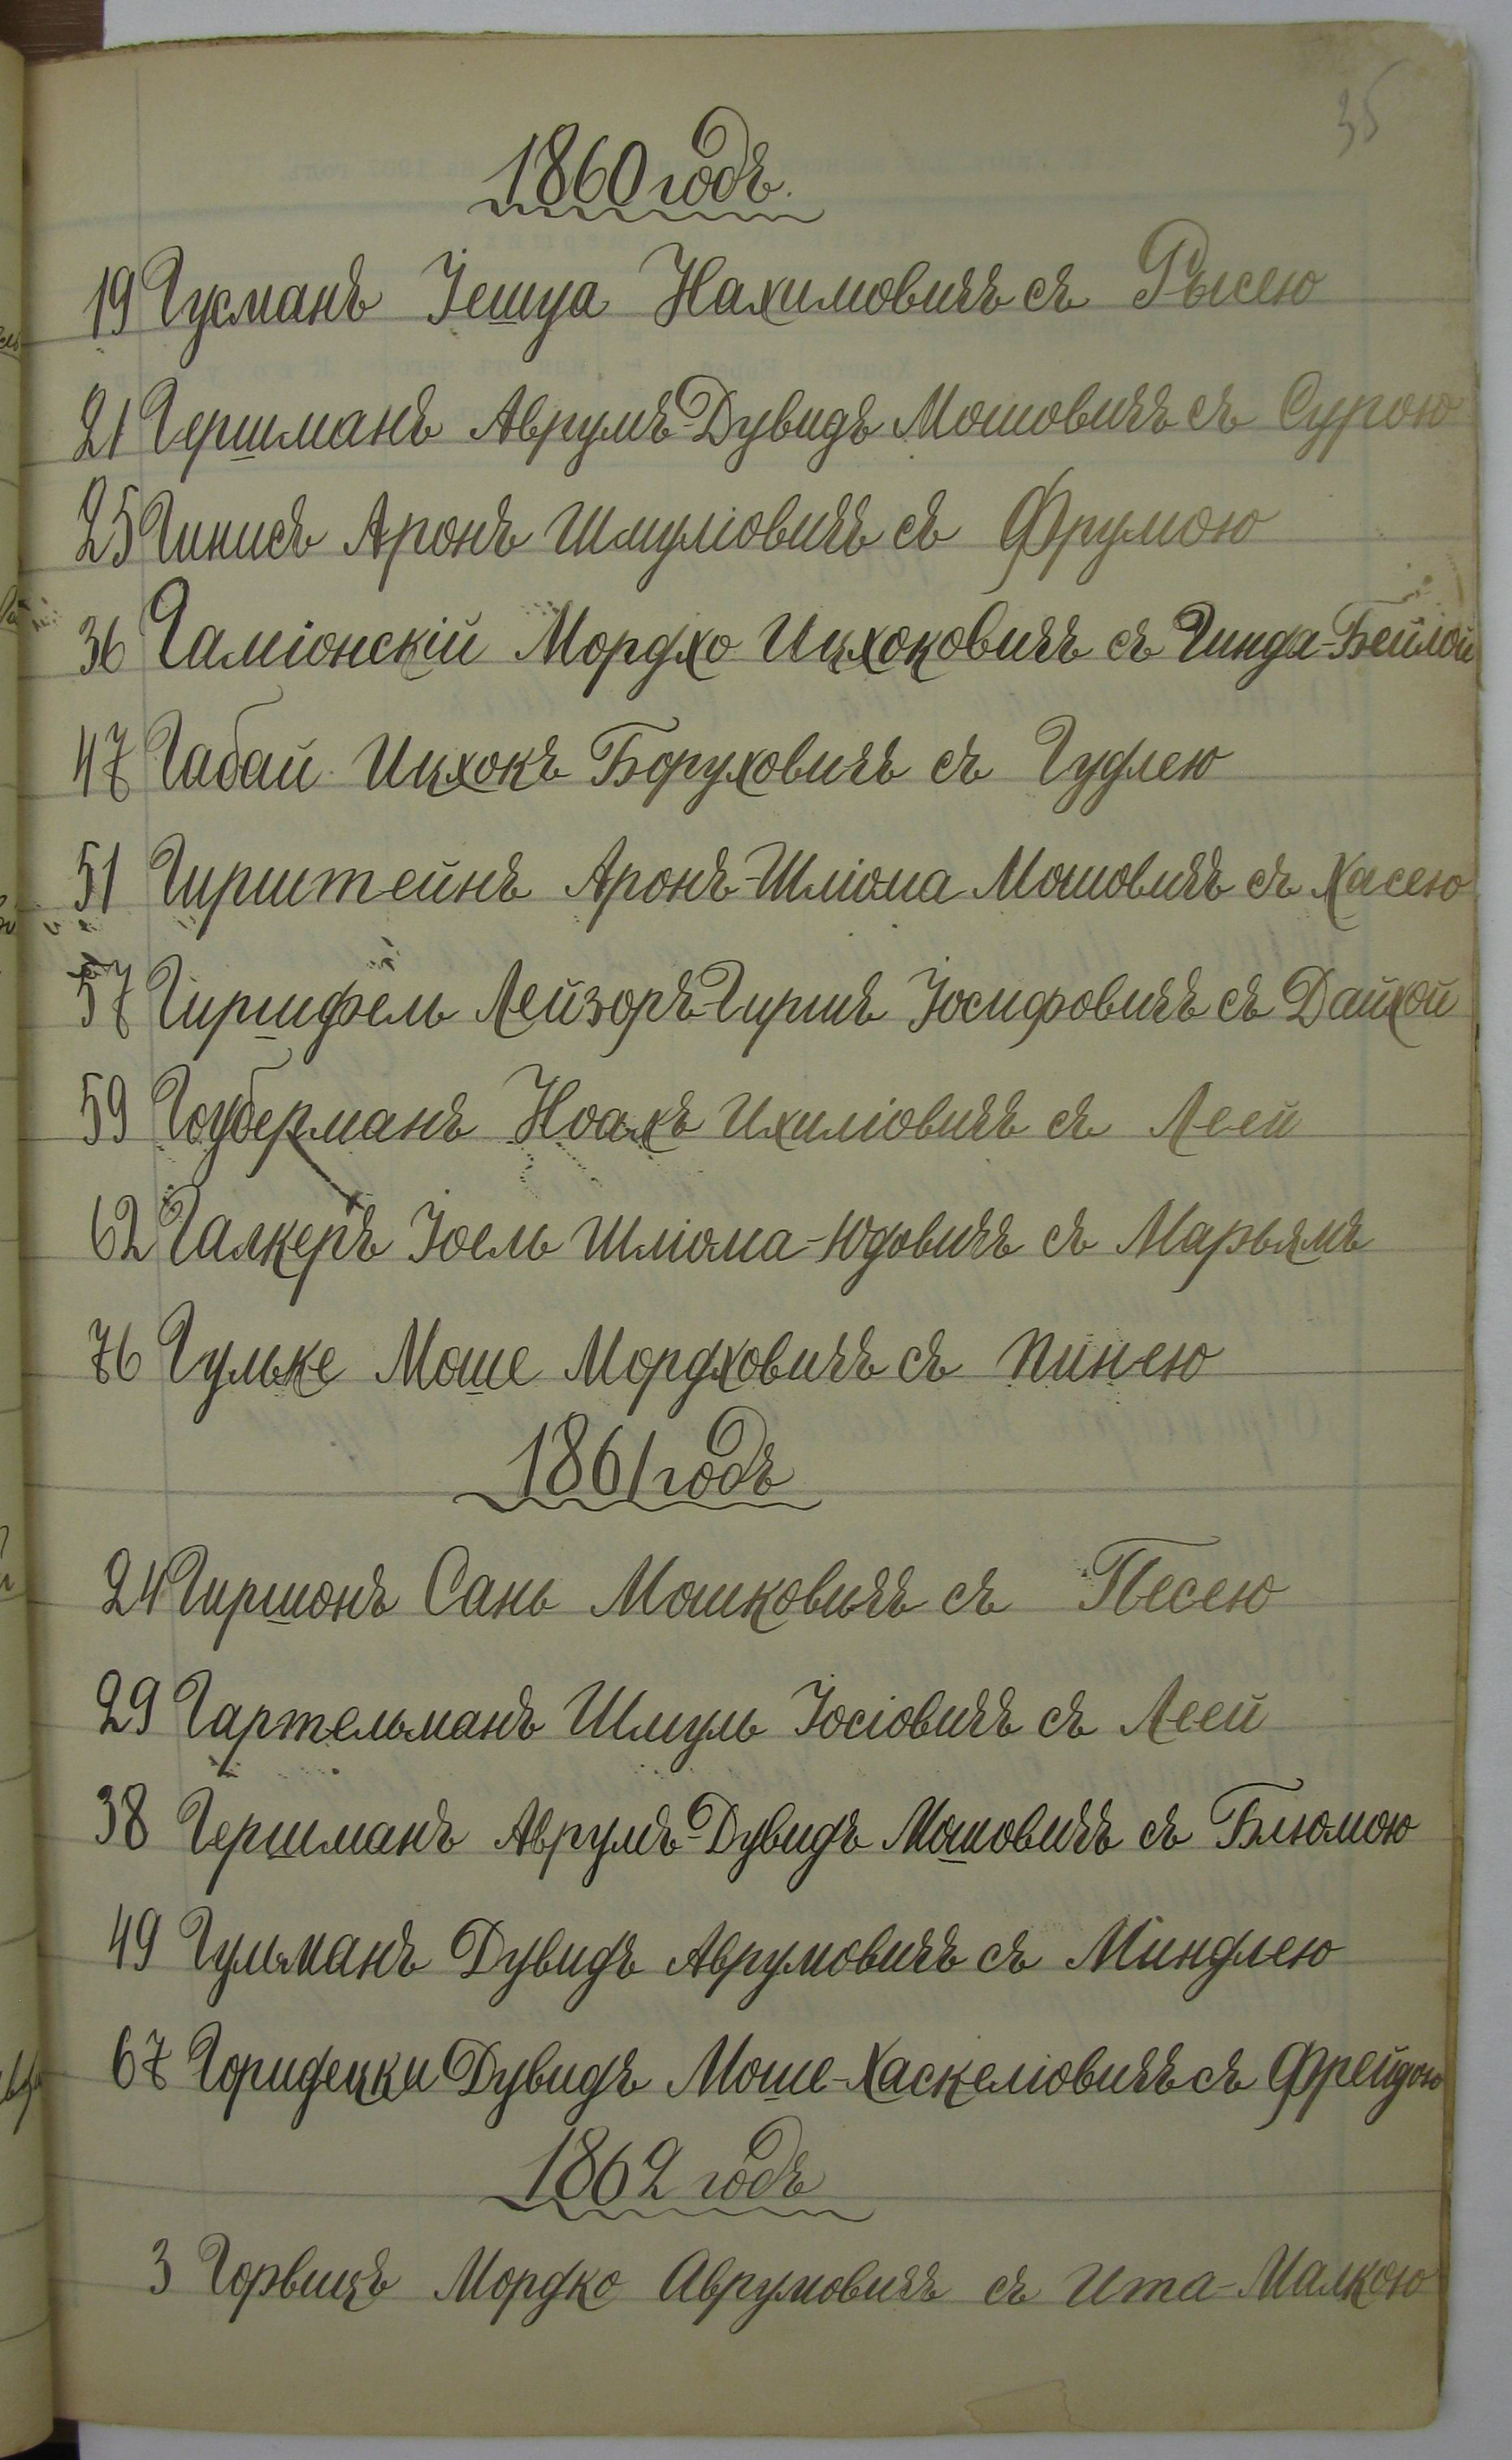 35
1860 годъ.
19 Гусманъ Іешуа Нахимовичъ съ Рысею
21 Гершманъ Аврумъ-Дувидъ Мошовичъ съ Сурою
25 Гинисъ Аронъ Шмуліовичъ съ Фрумою
36 Гаміонскій Мордхо Ицхоковичъ съ Гинда-Бейлой
47 Габай Ицхокъ Боруховичъ съ Гудлею
51 Гирштейнъ Аронъ-Шліома Мошовичъ съ Хасею
57 Гиршфель Лейзоръ-Гиршъ Іосифовичъ съ Дайхой
59 Гоуберманъ Ноахъ Ихиліовичъ съ Леей
62 Галкеръ Іоель Шліома-Юдовичъ съ Марьямъ
76 Гульке Моше Мордховичъ съ Пинею
1861 годъ
24 Гиршонъ Сань Мошковичъ съ Песею
29 Гартельманъ Шмуль Іосіовичъ съ Леей
38 Гершманъ Аврумъ-Дувидъ Мошовичъ съ Блюмою
49 Гульманъ Дувидъ Аврумовичъ съ Миндлею
67 Горидецки Дувидъ Моше-Хаскеліовичъ съ Фрейдою
1862 годъ
3 Горвицъ Мордко Аврумовичъ съ Ита-Малкою